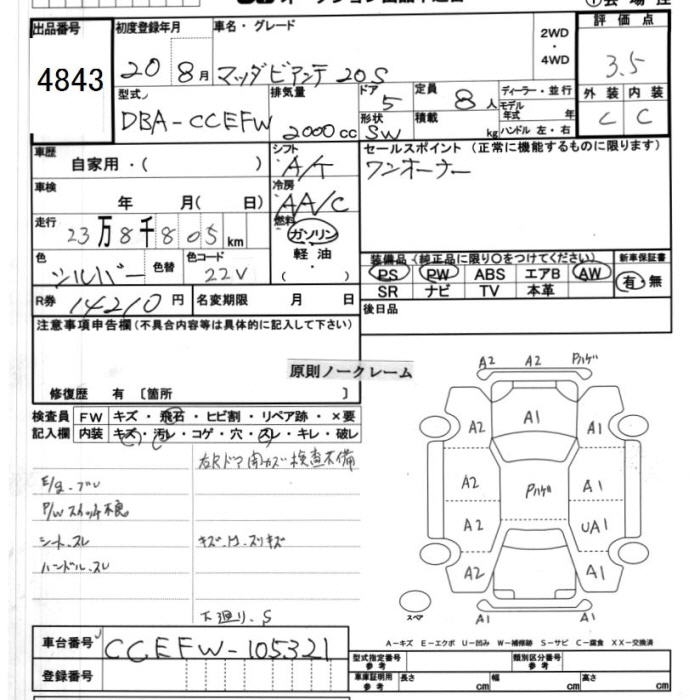 出品番号 初度登録年月 車名・グレード 2WD・4WD 評価点
4843 20 8月 マツダビアンテ 20S 3.5
型式 排気量 ドア 定員 ディーラー・並行 外装 内装
DBA-CCEFW 2000cc 5 8人 モデル年式 年 C C
形状 積載 ハンドル 左・右
SW kg
車歴 自家用・( ) シフト A/T セールスポイント (正常に機能するものに限ります)
ワンオーナー
車検 年 月( 日) 冷房 AA/C
走行 23万8千805km 燃料 ガソリン
軽油
( )
色 シルバー 色替 色コード 22V
装備品 (純正品に限り○をつけてください) 新車保証書
PS PW ABS エアB AW 有・無
SR ナビ TV 本革
R券 14210円 名変期限 月 日 後日品
注意事項申告欄(不具合内容等は具体的に記入して下さい)
原則ノークレーム
修復歴 有 〔箇所 〕
検査員 FW キズ・飛石・ヒビ割・リペア跡・×要
記入欄 内装 キズ・汚レ・コゲ・穴・スレ・キレ・破レ
右Rドア 開カズ 検査不備
E/g.ブレ
P/Wスイッチ不良
シート.スレ
キズ.凹.スリキズ
ハンドル.スレ
下廻り.S
A2 A2 Pハゲ
A2 A1 A1
A2 Pハゲ A1
A2 UA1
A2 A1
スペア A1 A1
A-キズ E-エクボ U-凹み W-補修跡 S-サビ C-腐食 XX-交換済
車台番号 CCEFW-105321
登録番号
型式指定番号 参考 類別区分番号 参考
車庫証明用 参考 長さ cm 幅 cm 高さ cm